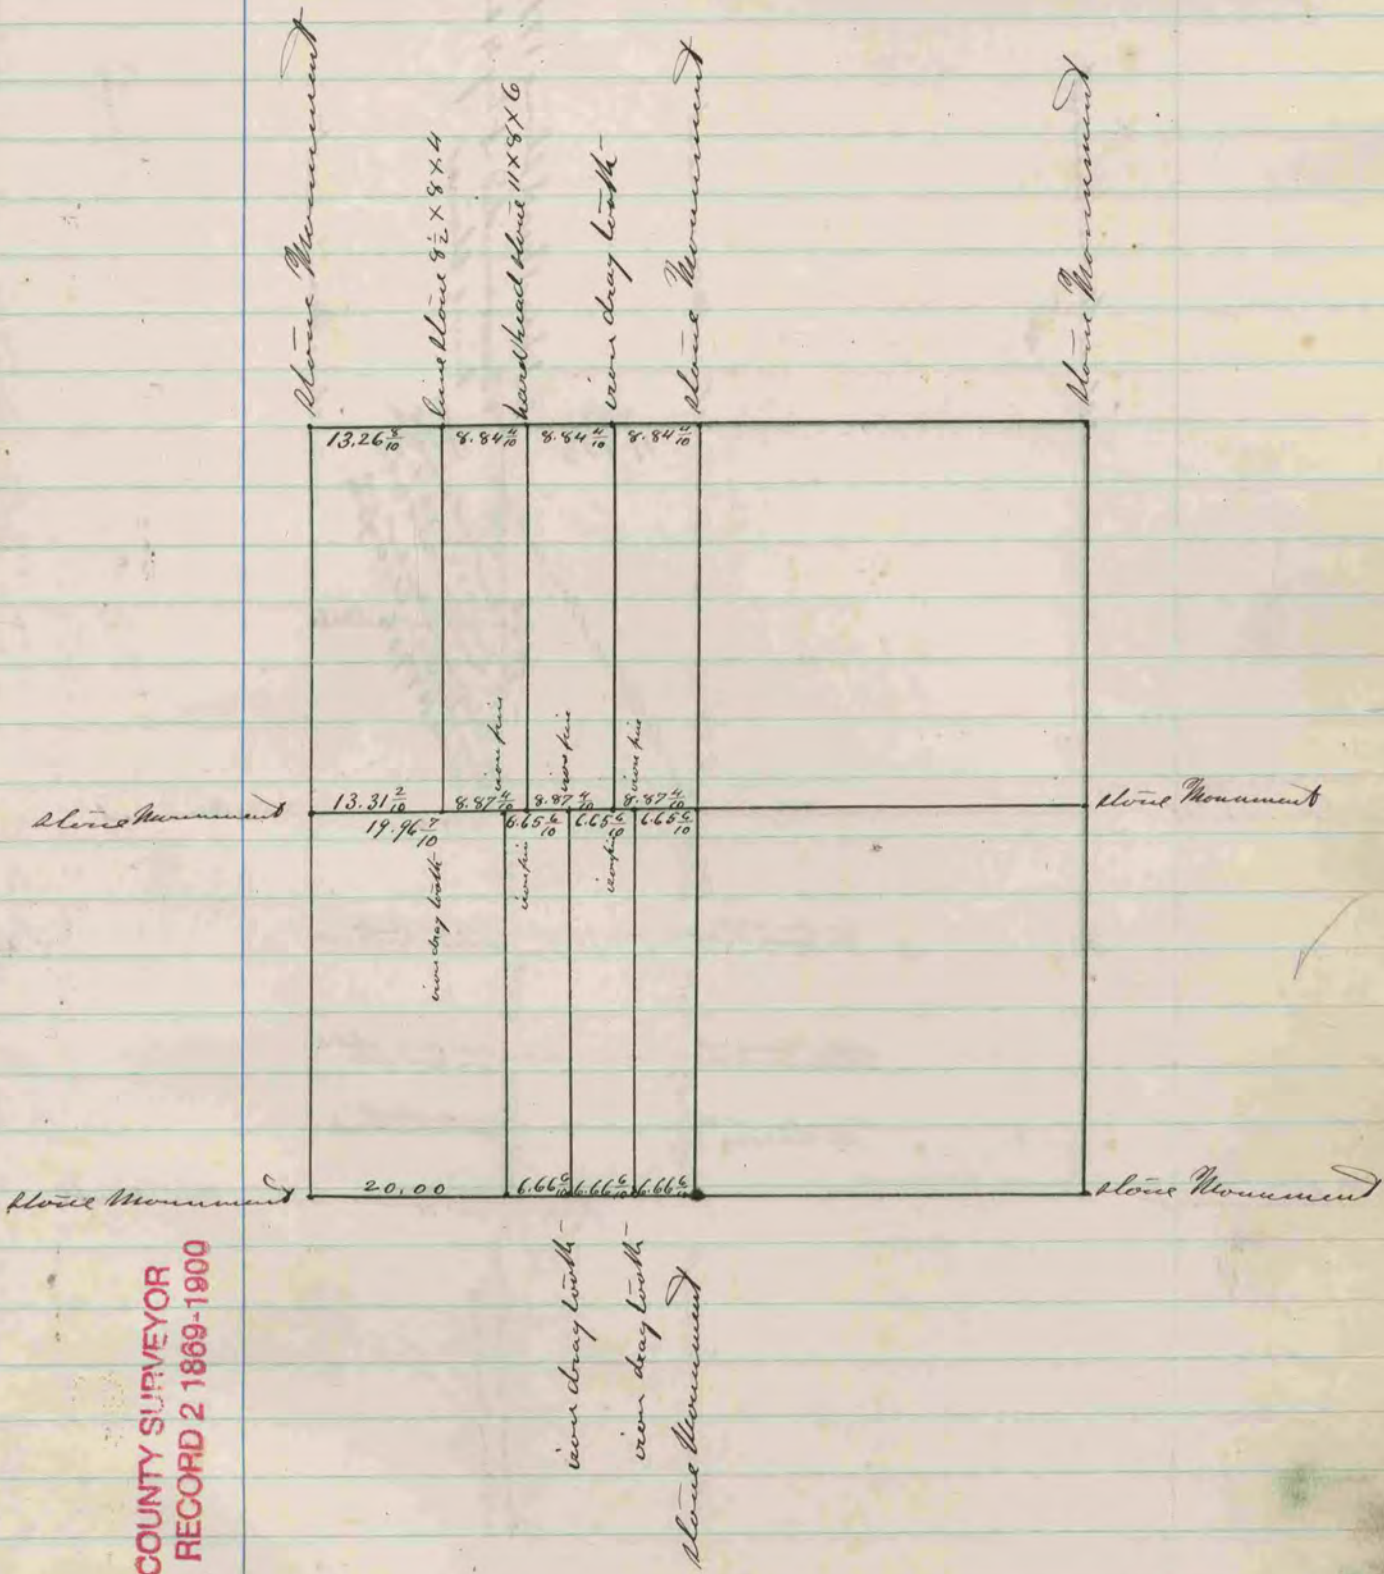 Stone Monument
lime stone 8 1/2 X 8 X 4
hardhead stone 11 X 8 X 6
iron drag tooth
Stone Monument
Stone Monument
13.26 8/10
8.84 4/10
8.84 4/10
8.84 4/10
iron pin
iron pin
iron pin
Stone Monument
13.31 2/10
8.87 4/10
8.87 4/10
8.87 4/10
Stone Monument
19.96 7/10
6.65 6/10
6.65 6/10
6.65 6/10
iron drag tooth
iron pin
iron pin
Stone Monument
20.00
6.66 6/10
6.66 6/10
6.66 6/10
Stone Monument
iron drag tooth
iron drag tooth
Stone Monument
COUNTY SURVEYOR
RECORD 2 1869-1900